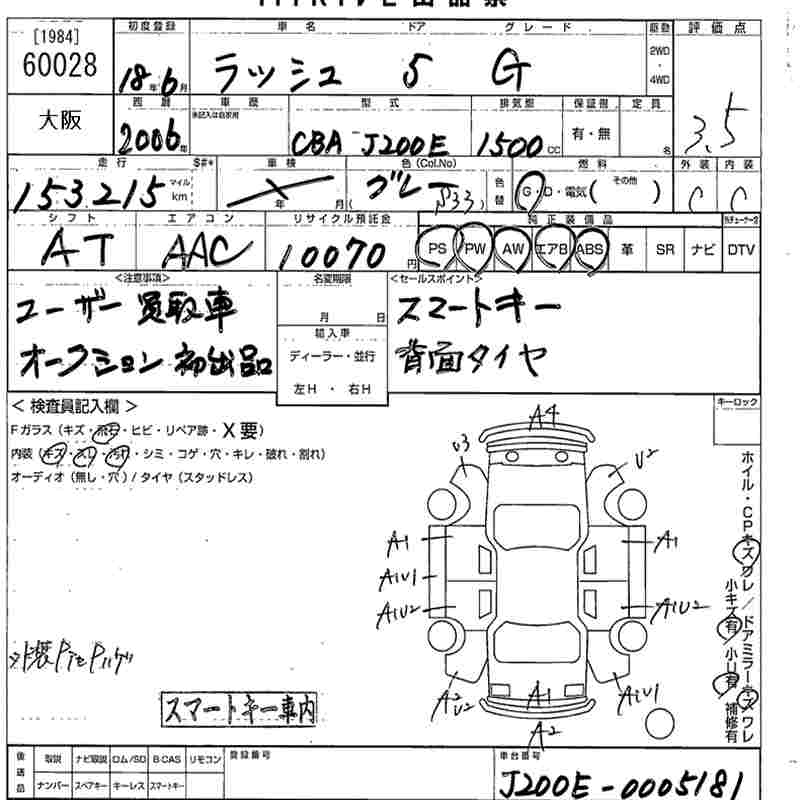 出品票
[1984]
60028
初度登録 車名 ドア グレード 駆動 評価点
18年6月 ラッシュ 5 G 2WD・4WD 3.5
大阪
西暦 車歴 型式 排気量 保証書 定員
未記入は自家用
2006年 CBA J200E 1500CC 有・無 名
走行 $#* 車検 色(Col.No) 燃料 外装 内装
153215 マイル km 年 月 ( グレー S33) 色替 G・D・電気( その他 ) C C
シフト エアコン リサイクル預託金 純正装備品
AT AAC 10070円 PS PW AW エアB ABS 革 SR ナビ DTV
<注意事項> 名変期限 <セールスポイント>
ユーザー買取車 月 日 スマートキー
オークション初出品 輸入車 背面タイヤ
ディーラー・並行
左H・右H
<検査員記入欄> キーロック
Fガラス(キズ・飛石・ヒビ・リペア跡・X要)
内装(キズ・スレ・汚れ・シミ・コゲ・穴・キレ・破れ・割れ)
オーディオ(無し・穴)/タイヤ(スタッドレス)
A4
U3 U2
A1 A1
A1U1
A1U2 A1U2
A2 U2 A1 A1U1
A2
ホイル・CPキズワレ/ドアミラーキズワレ
小キズ有/小U有/補修有
スマートキー車内
後送品 取説 ナビ取説 ロム/SD B-CAS リモコン 登録番号 車台番号
ナンバー スペアキー キーレス スマートキー J200E-0005181